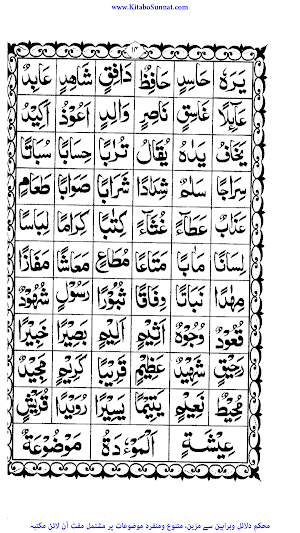 www.KitaboSunnat.com
۱۴
يَرَهٗ حَاسِدٍ حَافِظٌ دَافِقٍ شَاهِدٍ عَابِدٌ
عَآئِلًا غَاسِقٍ نَاصِرٍ وَالِدٍ اَعُوْذُ اَكِيْدُ
يَخَافُ يَدٰهُ يُقَالُ تُرٰبًا حِسَابًا سُبَاتًا
سِرَاجًا سَلٰمٌ شِدَادًا شَرَابًا صَوَابًا طَعَامٍ
عَذَابٌ عَطَآءً غُثَآءً كِتٰبًا كِرَامًا لِبَاسًا
لِسَانًا مَاٰبًا مَتَاعًا مُطَاعٍ مَعَاشًا مَفَازًا
مِهٰدًا نَبَاتًا وِفَاقًا ثُبُوْرًا رَسُوْلٍ شُهُوْدٌ
قُعُوْدٌ وُجُوْهٌ اَثِيْمٍ اَلِيْمٍ بَصِيْرًا خَبِيْرًا
رَحِيْقٍ شَهِيْدٌ عَظِيْمٍ قَرِيْبًا كَرِيْمٍ مَجِيْدٌ
مُحِيْطٌ نَعِيْمٍ يَتِيْمًا يَسِيْرًا رُوَيْدًا قُرَيْشٍ
عِيْشَةٍ اَلْمَوْءٗدَةُ مَوْضُوْعَةٌ
محکم دلائل وبراہین سے مزین، متنوع ومنفرد موضوعات پر مشتمل مفت آن لائن مکتبہ